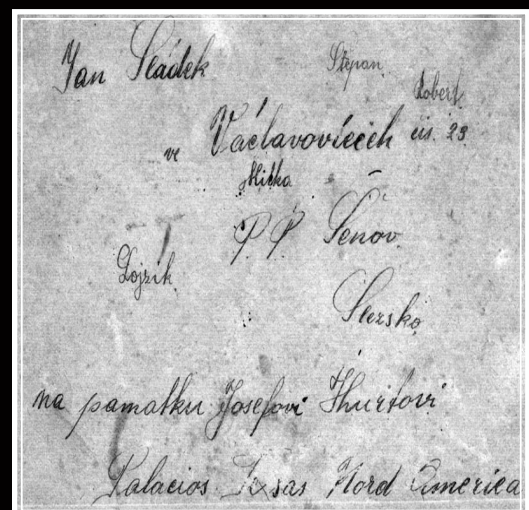 Jan Sládek
Štěpan
Robert
ve Václavovicích čís. 23
Milka
P. P. Šenov
Lojzik
Slezsko
na pamatku Josefovi
Palacios Texas Nord America